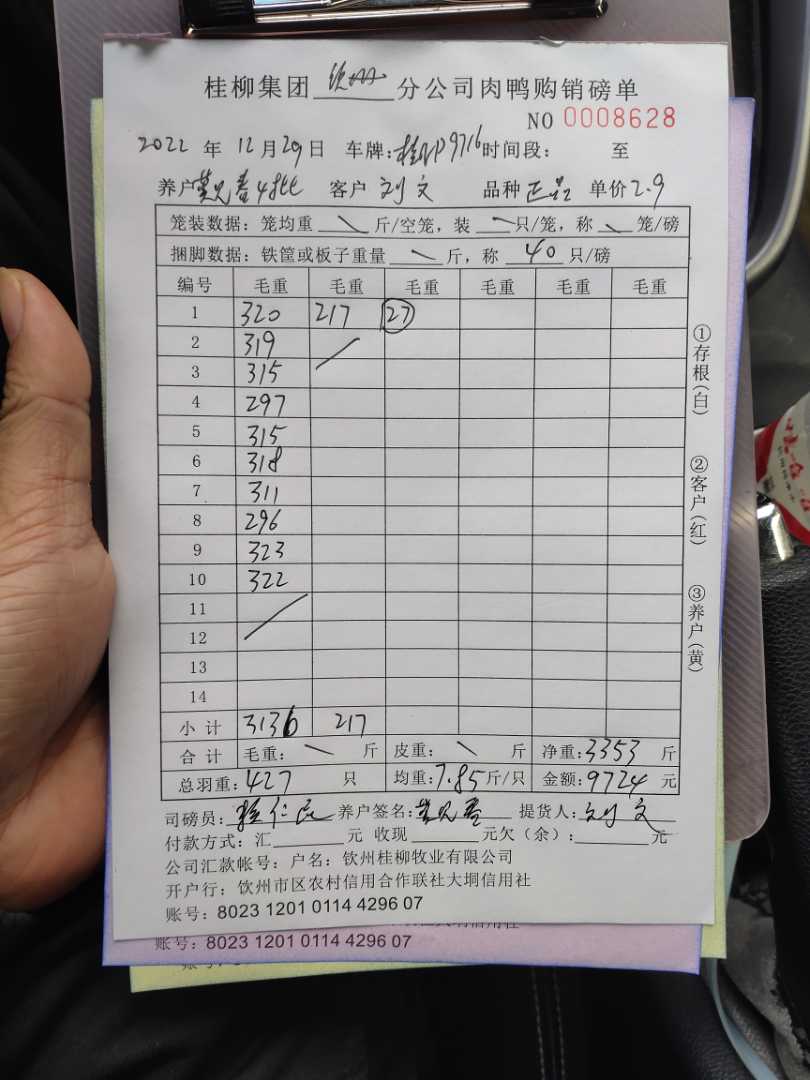 桂柳集团 钦州 分公司肉鸭购销磅单
NO 0008628
2022 年 12 月 29 日 车牌: 桂 9716 时间段: 至
养户 4批 客户 刘文 品种 正品 单价 2.9
笼装数据: 笼均重 \ 斤/空笼, 装 \ 只/笼, 称 \ 笼/磅
捆脚数据: 铁筐或板子重量 \ 斤, 称 40 只/磅
编号 毛重 毛重 毛重 毛重 毛重 毛重
1 320 217 27
2 319
3 315
4 297
5 315
6 318
7 311
8 296
9 323
10 322
11
12
13
14
小计 3136 217
合计 毛重: \ 斤 皮重: \ 斤 净重: 3353 斤
总羽重: 427 只 均重: 7.85 斤/只 金额: 9724 元
司磅员: 养户签名: 提货人: 刘文
付款方式: 汇 元 收现 元欠（余）: 元
公司汇款帐号: 户名: 钦州桂柳牧业有限公司
开户行: 钦州市区农村信用合作联社大垌信用社
账号: 8023 1201 0114 4296 07
①存根(白)
②客户(红)
③养户(黄)
账号: 8023 1201 0114 4296 07